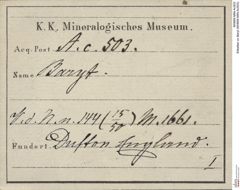 K. K. Mineralogisches Museum.
Acq. Post A. c. 503.
Name Baryt.
V. d. N. n. 144 (15/50) M. 1661.
Fundort. Dufton England.
I